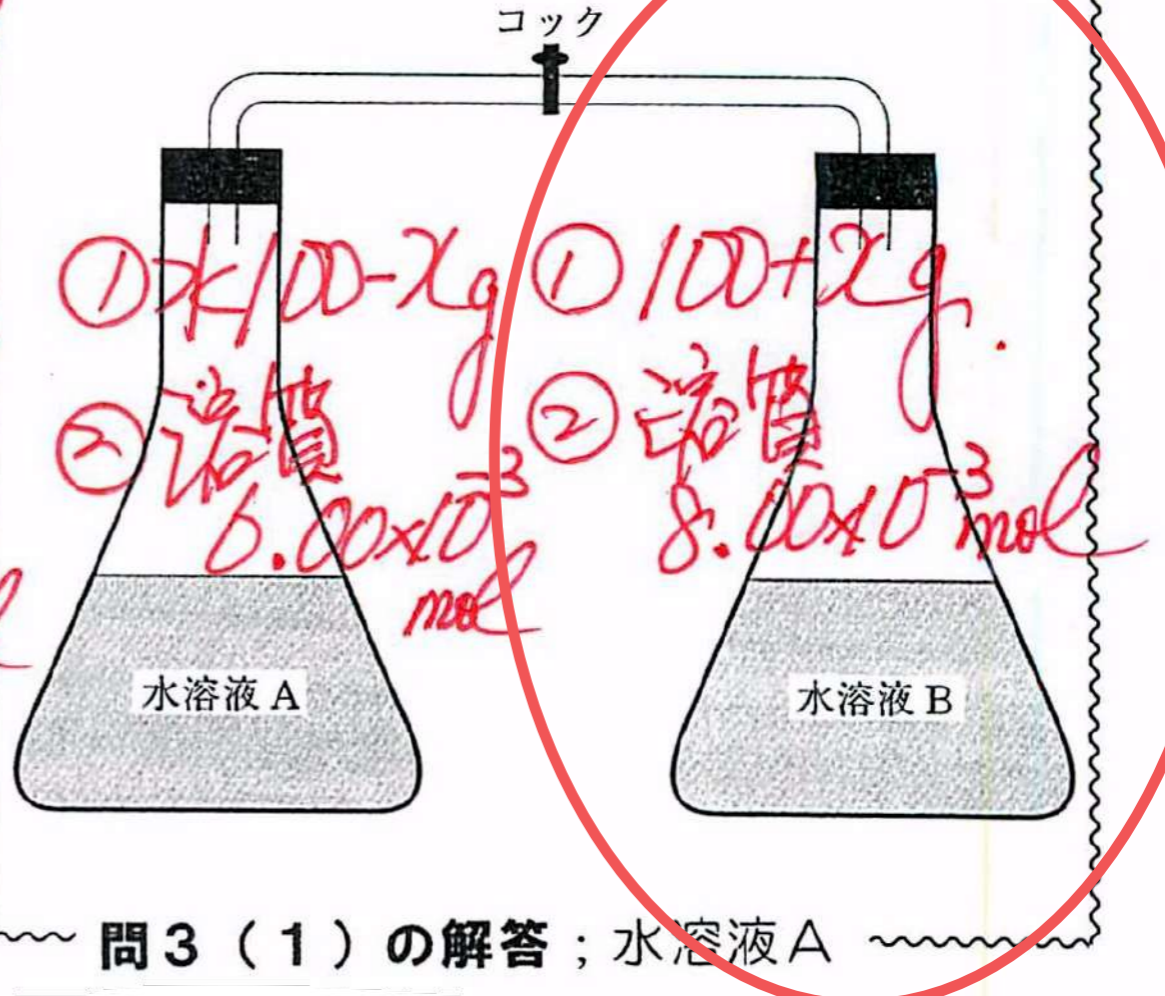 コック
①水100-xg
②溶質
6.00×10⁻³
mol
①100+xg.
②溶質
8.00×10⁻³mol
水溶液A
水溶液B
問3（1）の解答；水溶液A